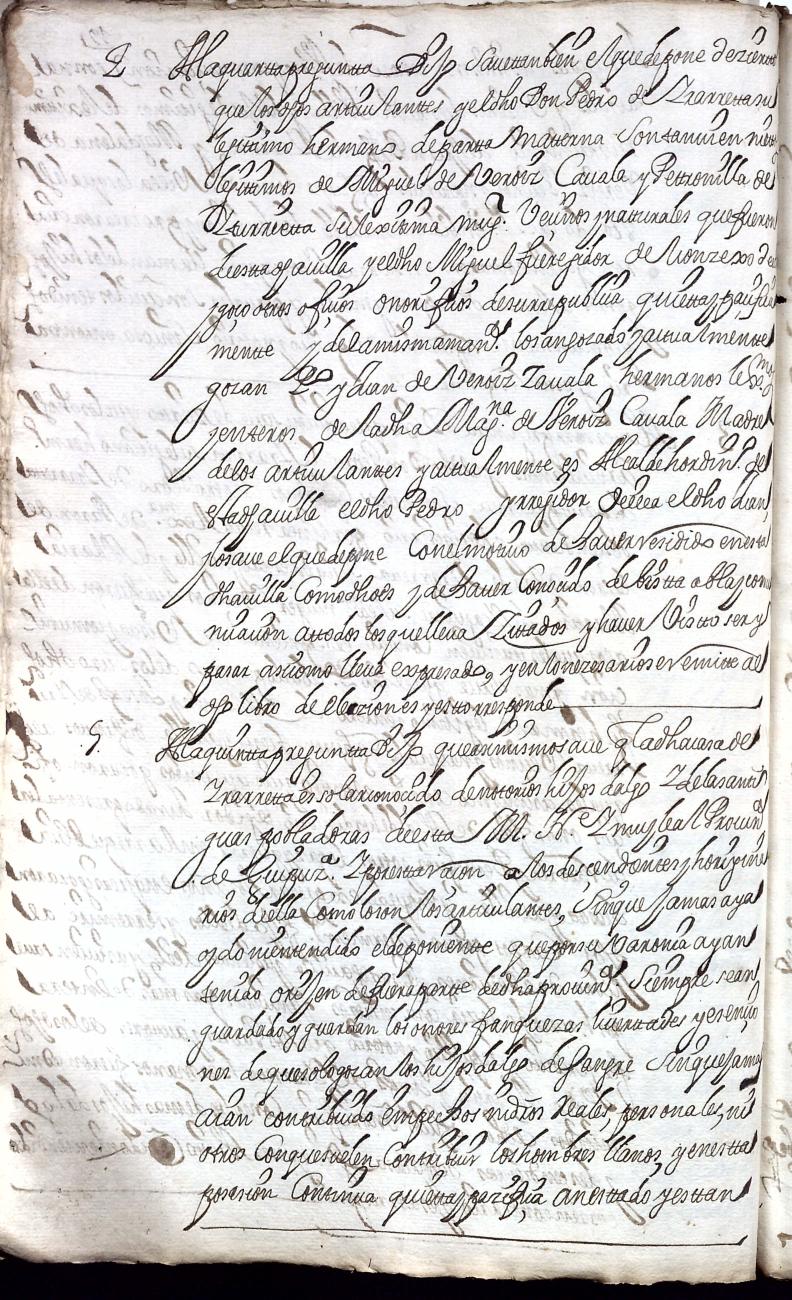 4 A la quartta pregunta Dijo Save tanbien el que depone de ziertto
que los dhos artticulanttes y el dho Don Pedro de Yrarretta su
lejittimo hermano de partte Matterna Son tanvien niettos
lejittimos de Miguel de Veroiz Cavala y Petronilla de
Yturrietta su lexitima mug.r Vecinos y naturales que fueron
de estta dha villa y el dho Miguel fue rejidor de Conzexo de ella
y gozo otros ofizios onorificos de su rrepublica quietta y pazifica
mentte y de la misma man.ra los an gozado y actualmentte
gozan Po y Juan de Veroiz Zavala hermanos lex.mos
y entteros de la dha Mag.na de Veroiz Cavala Madre
de los artticulanttes y actualmentte es Alcalde hordin.o de
estta dha villa el dho Pedro y rrejidor de ella el dho Juan
y lo save el que depone Con el motivo de haver residido en estta
dha villa Como dho es y de haver Conocido de bistta abla y comu
nicacion a ttodos los que lleva Zittados y haver Visto ser y
pasar asi como lleva expresado, y en lo nezesario se rremitte al
dho libro de elecziones y estto rresponde
5 A la quintta pregunta Dijo que asi mismo save q la dha casa de
Yrarretta es solar conocido de nottorios hijos dalgo Y de las antti
guas pobladoras de estta M. N. Y muy leal Provin.a
de Guipuz.a Y por esttar racon a los descendienttes y horijina
rios de ella Como lo son los artticulantes, Sin que jamas aya
oydo ni entendido el deponientte que por su Varonia ayan
tenido orijen de fuera partte de dha provin.a Siempre se an
guardado y guardan los onores franquezas livertades y esencio
nes de que solo gozan los hijos dalgo de Sangre Sin que jamas
aian contribuido en pechos ni dros Reales, personales, ni
otros Con que suelen Contribuir los hombres llanos, y en estta
posesion Continua quietta y pazifica, an esttado y esttan